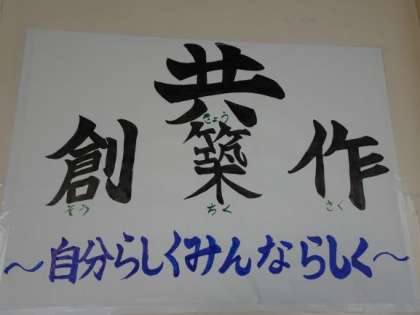 共
きょう
創築作
そうちくさく
～自分らしくみんならしく～